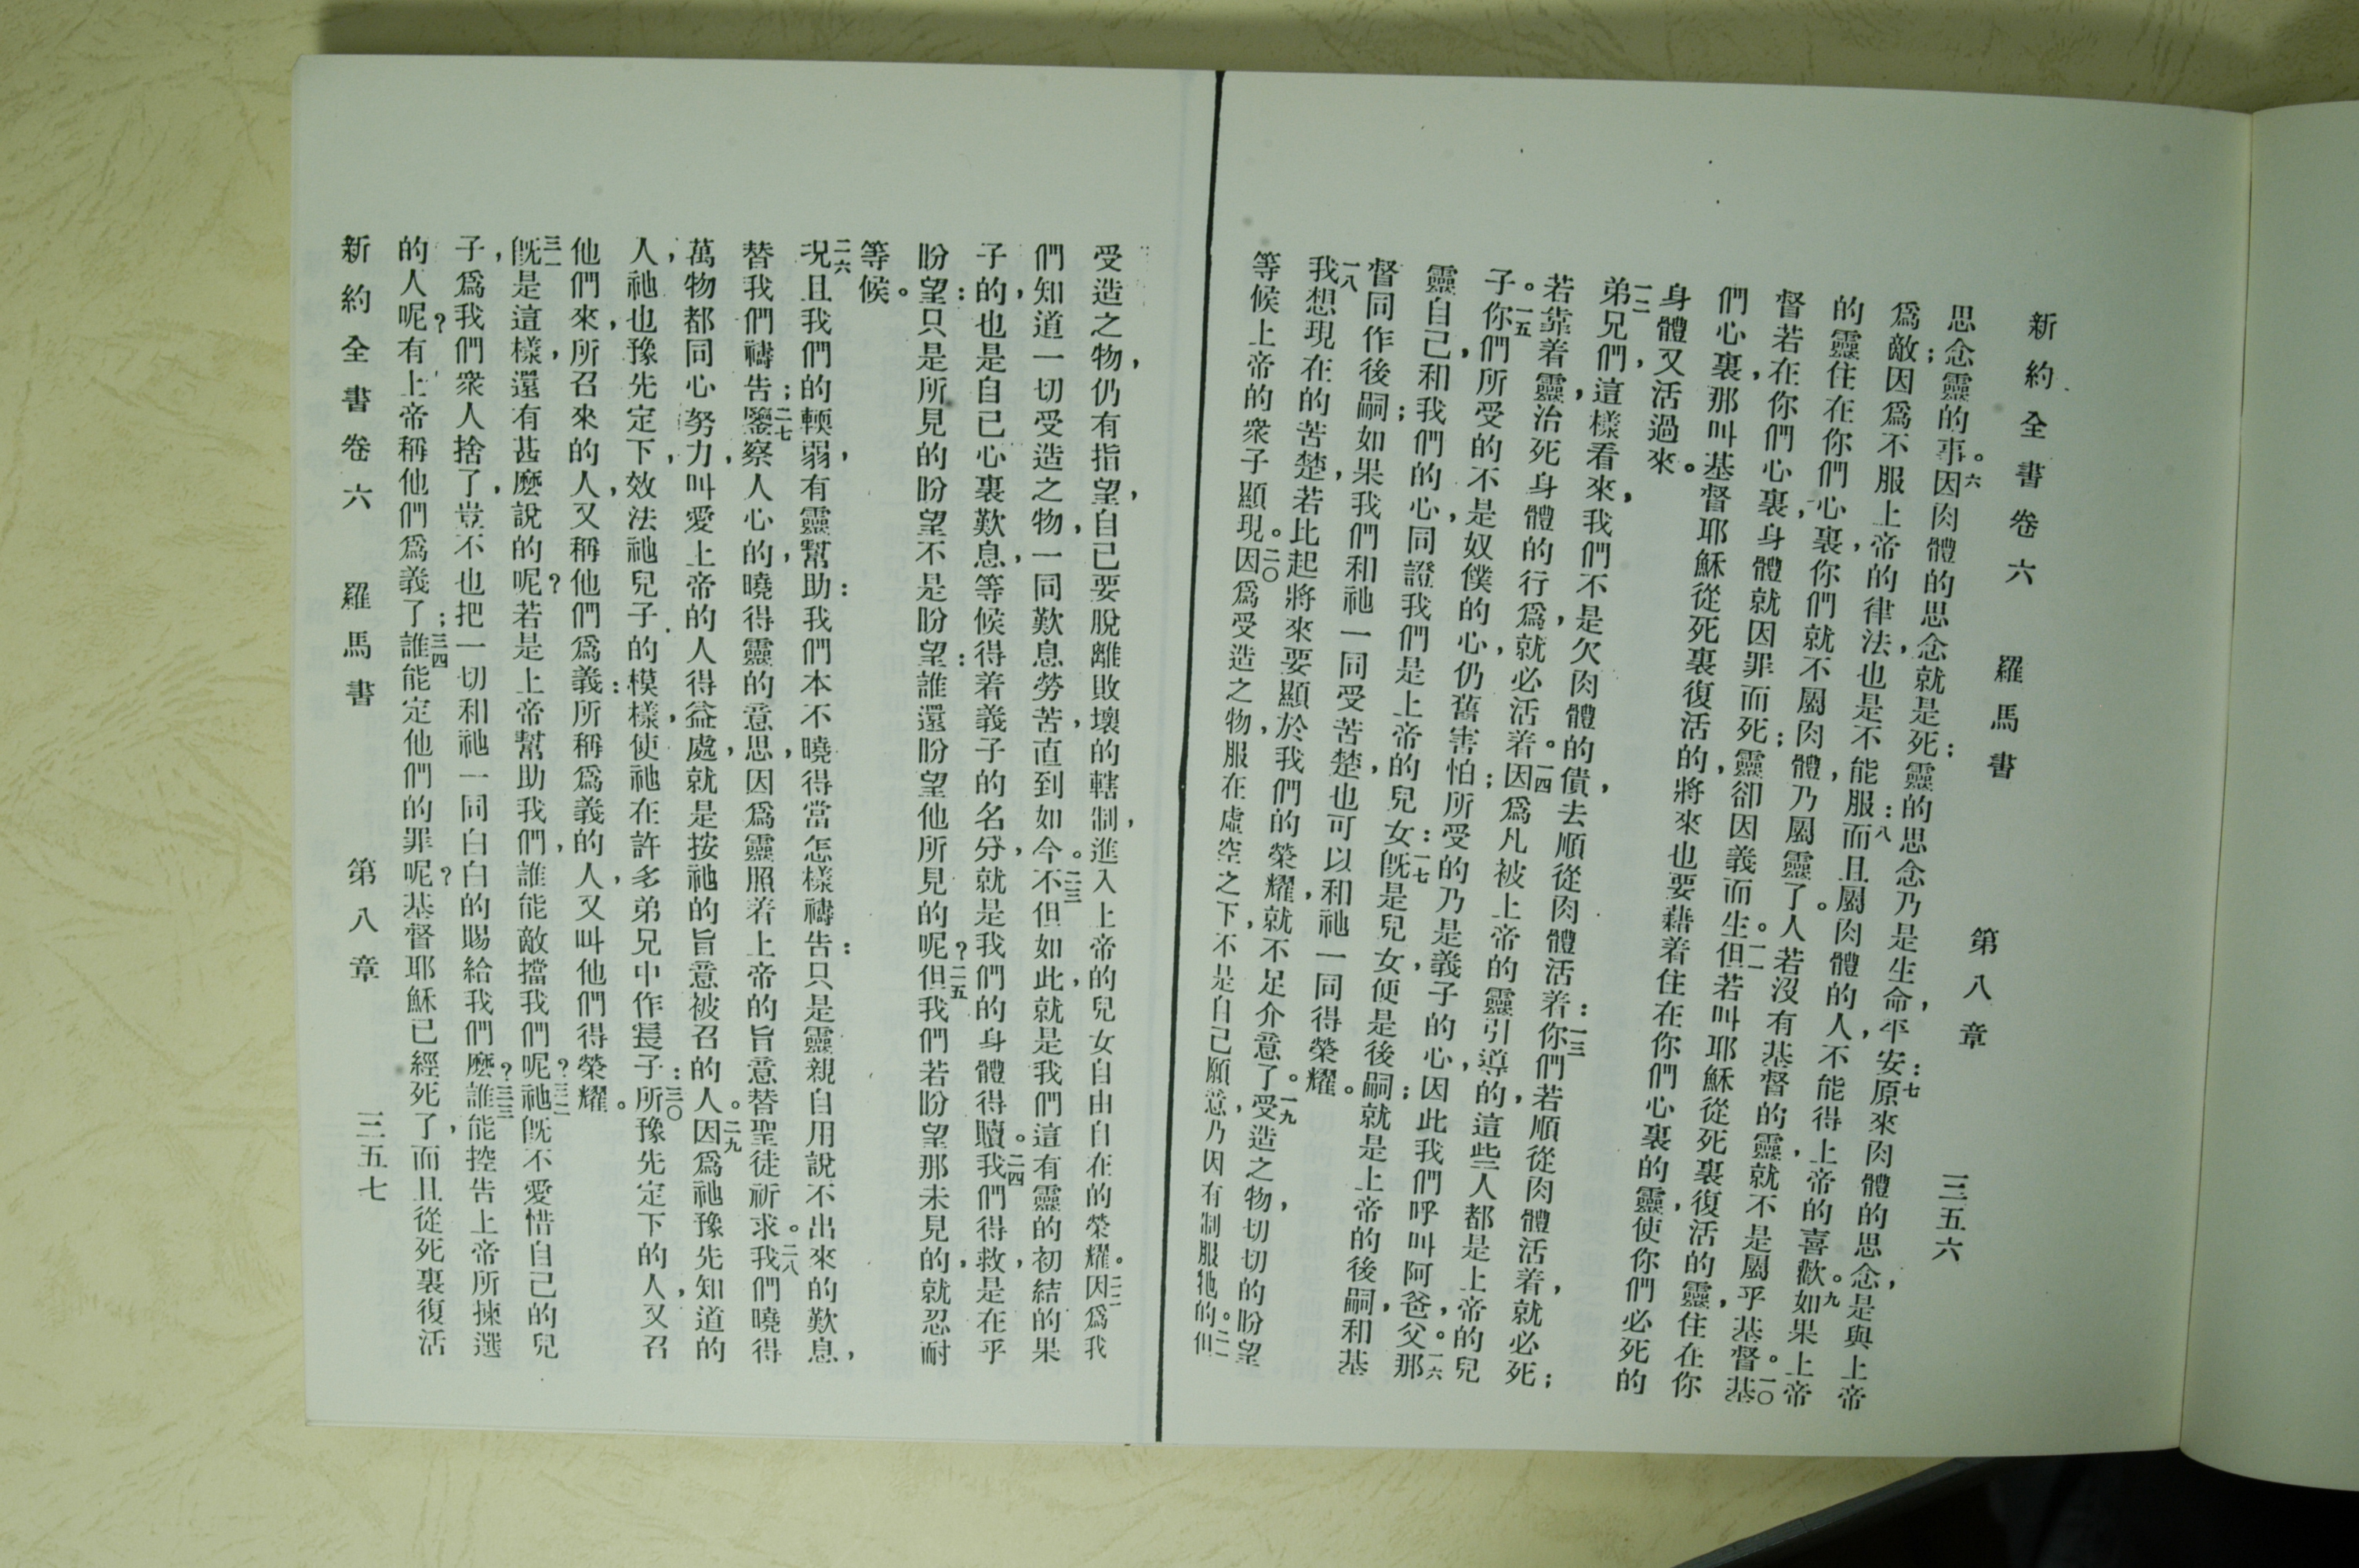 新約全書卷六　羅馬書　第八章　三五六
思念靈的事。六因肉體的思念就是死：靈的思念乃是生命，平安：七原來肉體的思念，是與上帝
爲敵；因爲不服上帝的律法，也是不能服：八而且屬肉體的人，不能得上帝的喜歡。九如果上帝
的靈住在你們心裏，你們就不屬肉體，乃屬靈了。人若沒有基督的靈，就不是屬乎基督。一〇基
督若在你們心裏，身體就因罪而死；靈卻因義而生。一一但若叫耶穌從死裏復活的靈，住在你
們心裏，那叫基督耶穌從死裏復活的，將來也要藉着住在你們心裏的靈，使你們必死的
身體又活過來。
一二弟兄們，這樣看來，我們不是欠肉體的債，去順從肉體活着：一三你們若順從肉體活着，就必死；
若靠着靈，治死身體的行爲，就必活着。一四因爲凡被上帝的靈引導的，這些人都是上帝的兒
子。一五你們所受的，不是奴僕的心，仍舊害怕；所受的乃是義子的心，因此我們呼叫阿爸，父。一六那
靈自己，和我們的心，同證我們是上帝的兒女：一七旣是兒女，便是後嗣；就是上帝的後嗣，和基
督同作後嗣；如果我們和祂一同受苦，也可以和祂一同得榮耀。
一八我想現在的苦楚，若比起將來要顯於我們的榮耀，就不足介意了。一九受造之物，切切的盼望
等候上帝的衆子顯現。二〇因爲受造之物，服在虛空之下，不是自己願意，乃因有制服牠的。二一但
受造之物，仍有指望，自己要脫離敗壞的轄制，進入上帝的兒女自由自在的榮耀。二二因爲我
們知道一切受造之物，一同歎息勞苦，直到如今。二三不但如此，就是我們這有靈的初結的果
子的，也是自己心裏歎息，等候得着義子的名分，就是我們的身體得贖。二四我們得救，是在乎
盼望：只是所見的盼望不是盼望：誰還盼望他所見的呢？二五但我們若盼望那未見的，就忍耐
等候。
二六况且我們的輭弱，有靈幫助：我們本不曉得當怎樣禱告：只是靈親自用說不出來的歎息，
替我們禱告；二七鑒察人心的，曉得靈的意思，因爲靈照着上帝的旨意替聖徒祈求。二八我們曉得
萬物都同心努力，叫愛上帝的人得益處，就是按祂的旨意被召的人。二九因爲祂豫先知道的
人，祂也豫先定下，效法祂兒子的模樣，使祂在許多弟兄中作長子：三〇所豫先定下的人，又召
他們來，所召來的人，又稱他們爲義：所稱爲義的人，又叫他們得榮耀。
三一旣是這樣，還有甚麼說的呢？若是上帝幫助我們，誰能敵擋我們呢？三二祂旣不愛惜自己的兒
子，爲我們衆人捨了，豈不也把一切和祂一同白白的賜給我們麼？三三誰能控告上帝所揀選
的人呢？有上帝稱他們爲義了；三四誰能定他們的罪呢？基督耶穌已經死了，而且從死裏復活
新約全書卷六　羅馬書　第八章　三五七